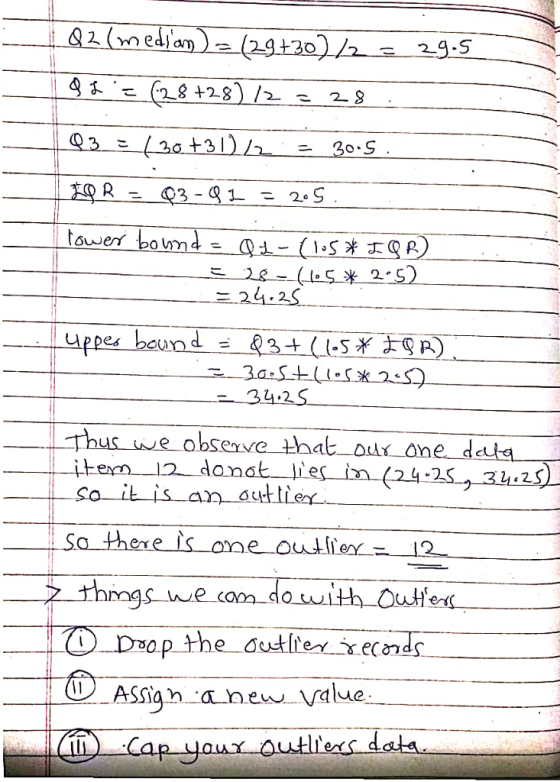 Q2 (median) = (29+30) /2 = 29.5
Q1 = (28+28) /2 = 28
Q3 = (30+31) /2 = 30.5.
IQR = Q3-Q1 = 2.5.
lower bound = Q1-(1.5* IQR)
= 28-(1.5* 2.5)
= 24.25
upper bound = Q3+(1.5* IQR).
= 30.5+(1.5* 2.5)
= 34.25
Thus we observe that our one data
item 12 donot lies in (24.25, 34.25)
so it is an outlier.
so there is one outlier = 12
> things we can do with Outliers
(i) Drop the outlier records
(ii) Assign a new value.
(iii) Cap your outliers data.